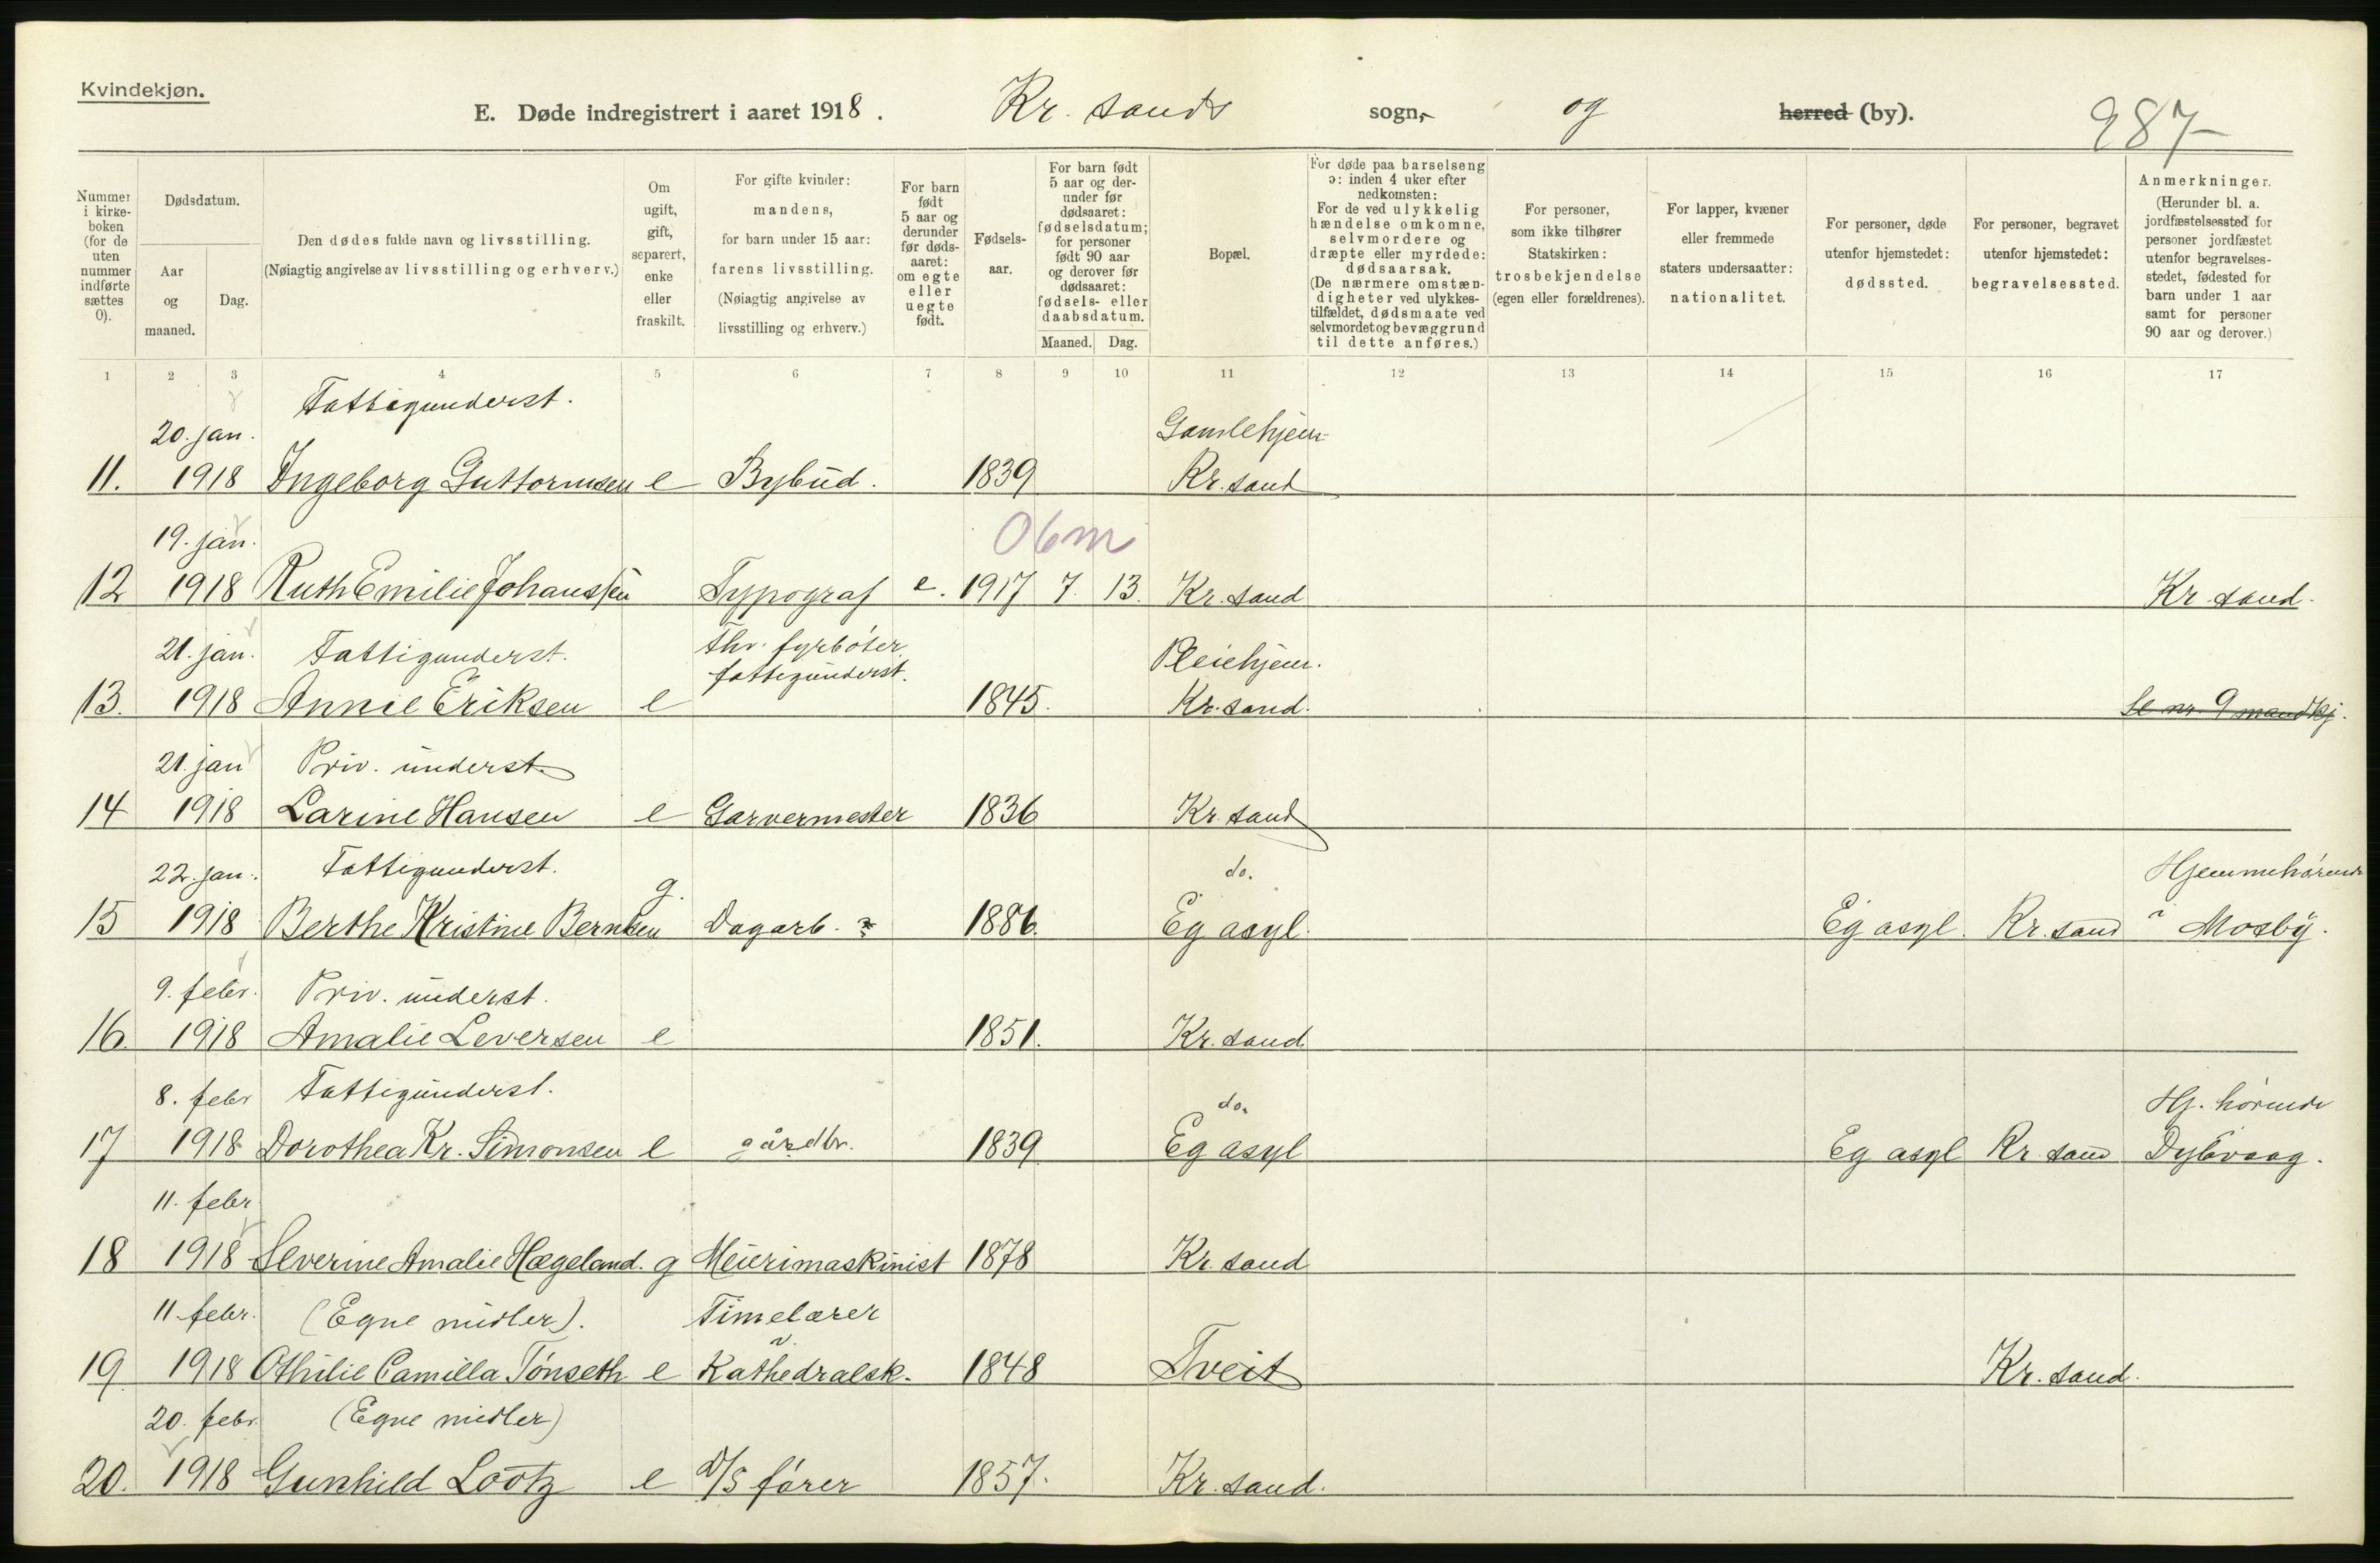 Kvindekjøn.
E. Døde indregistrert i aaret 1918. Kr. sands sogn, og herred (by). 987
Nummer i kirke-boken (for de uten nummer indførte sættes 0).
Dødsdatum.
Aar og maaned.
Dag.
Den dødes fulde navn og livsstilling.
(Nøiagtig angivelse av livsstilling og erhverv.)
Om ugift, gift, separert, enke eller fraskilt.
For gifte kvinder: mandens, for barn under 15 aar: farens livsstilling.
(Nøiagtig angivelse av livsstilling og erhverv.)
For barn født 5 aar og derunder før døds-aaret: om egte eller uegte født.
Fødsels-aar.
For barn født 5 aar og der-under før dødsaaret: fødselsdatum; for personer født 90 aar og derover før dødsaaret: fødsels- eller daabsdatum.
Maaned. Dag.
Bopæl.
For døde paa barselseng ɔ: inden 4 uker efter nedkomsten:
For de ved ulykkelig hændelse omkomne, selvmordere og dræpte eller myrdede: dødsaarsak.
(De nærmere omstæn-digheter ved ulykkes-tilfældet, dødsmaate ved selvmordet og bevæggrund til dette anføres.)
For personer, som ikke tilhører Statskirken: trosbekjendelse (egen eller forældrenes).
For lapper, kvæner eller fremmede staters undersaatter: nationalitet.
For personer, døde utenfor hjemstedet: dødssted.
For personer, begravet utenfor hjemstedet: begravelsessted.
Anmerkninger.
(Herunder bl. a. jordfæstelsessted for personer jordfæstet utenfor begravelses-stedet, fødested for barn under 1 aar samt for personer 90 aar og derover.)
1 2 3 4 5 6 7 8 9 10 11 12 13 14 15 16 17
Fattigunderst.
20. jan. Gamlehjem
11. 1918 Ingeborg Guttormsen e Bybud. 1839 Kr. sand
19. jan. 06m
12 1918 Ruth Emilie Johanssen Typograf e. 1917 7. 13. Kr. sand Kr. sand.
21. jan. Fattigunderst. fhv. fyrbøter. Pleiehjem.
fattigunderst.
13. 1918 Annie Eriksen e 1845. Kr. sand. Se nr. 9 mandkj.
21. jan Priv. underst.
14 1918 Larine Hansen e Garvermester 1836 Kr. sand
22. jan. Fattigunderst. g. do. Hjemmehørende
15 1918 Berthe Kristine Berntsen Dagarb. 1886. Eg asyl. Eg asyl. Kr. sand i Mosby.
9. febr. Priv. underst.
16. 1918 Amalie Leversen e 1851. Kr. sand
8. febr Fattigunderst. do. Hj. hørende
17 1918 Dorothea Kr. Simonsen e gårdbr. 1839 Eg asyl Eg asyl Kr. sand Dybvaag.
11. febr
18 1918 Severine Amalie Hægeland. g Meierimaskinist 1878 Kr. sand
11 febr. (Egne midler). Timelærer
v.
19 1918 Othilie Camilla Tønseth e Kathedralsk. 1848 Tveit Kr. sand.
20. febr. (Egne midler)
20. 1918 Gunhild Lootz e D/S fører 1857. Kr. sand.